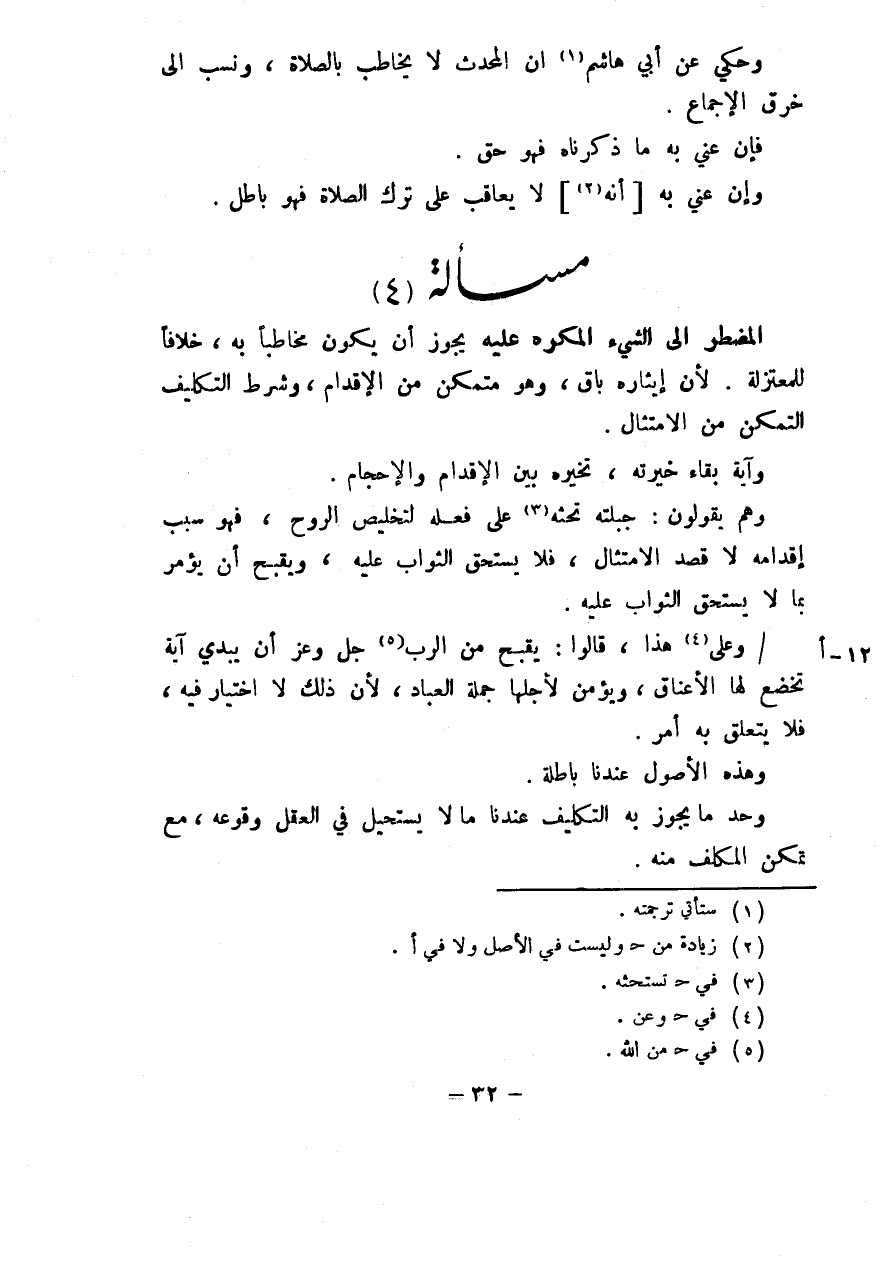 وحكي عن أبي هاشم(١) ان المحدث لا يخاطب بالصلاة ، ونسب الى
خرق الإجماع .
فإن عني به ما ذكرناه فهو حق .
وإن عني به [ أنه(٢) ] لا يعاقب على ترك الصلاة فهو باطل .
مسألة (٤)
المضطر الى الشيء المكره عليه يجوز أن يكون مخاطباً به ، خلافاً
للمعتزلة . لأن إيثاره باق ، وهو متمكن من الإقدام ، وشرط التكليف
التمكن من الامتثال .
وآية بقاء خيرته ، تخيره بين الإقدام والإحجام .
وهم يقولون : جبلته تحثه(٣) على فعله لتخليص الروح ، فهو سبب
إقدامه لا قصد الامتثال ، فلا يستحق الثواب عليه ، ويقبح أن يؤمر
بما لا يستحق الثواب عليه .
١٢ - أ / وعلى(٤) هذا ، قالوا : يقبح من الرب(٥) جل وعز أن يبدي آية
تخضع لها الأعناق ، ويؤمن لأجلها جملة العباد ، لأن ذلك لا اختيار فيه ،
فلا يتعلق به أمر .
وهذه الأصول عندنا باطلة .
وحد ما يجوز به التكليف عندنا ما لا يستحيل في العقل وقوعه ، مع
تمكن المكلف منه .
(١) ستأتي ترجمته .
(٢) زيادة من ح وليست في الأصل ولا في أ .
(٣) في ح تستحثه .
(٤) في ح وعن .
(٥) في ح من الله .
- ٣٢ =